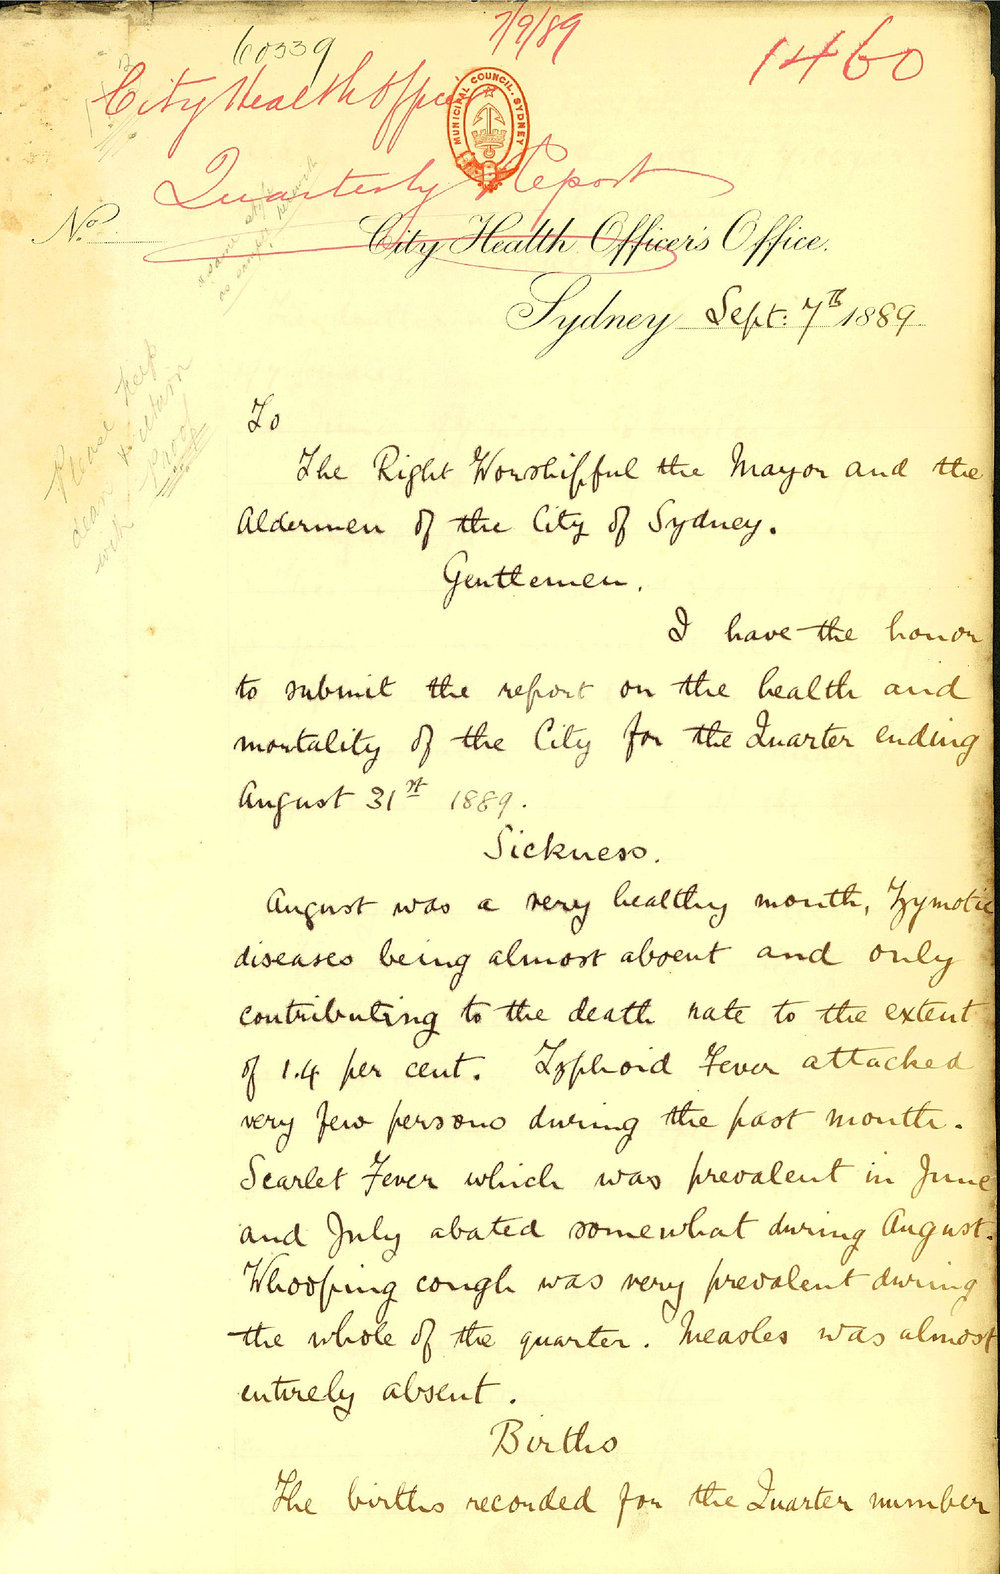 7/9/89
60339
1460
City Health Office
MUNICIPAL COUNCIL. SYDNEY
Quarterly Report
No.
City Health Officer's Office.
Sydney Sept: 7th 1889
Please keep
clean & return
with
To
The Right Worshipful the Mayor and the
Aldermen of the City of Sydney.
Gentlemen.
I have the honor
to submit the report on the health and
mortality of the City for the Quarter ending
August 31st 1889.
Sickness.
August was a very healthy month, Zymotic
diseases being almost absent and only
contributing to the death rate to the extent
of 1.4 per cent. Typhoid Fever attacked
very few persons during the past month.
Scarlet Fever which was prevalent in June
and July abated somewhat during August.
Whooping cough was very prevalent during
the whole of the quarter. Measles was almost
entirely absent.
Births
The births recorded for the Quarter number